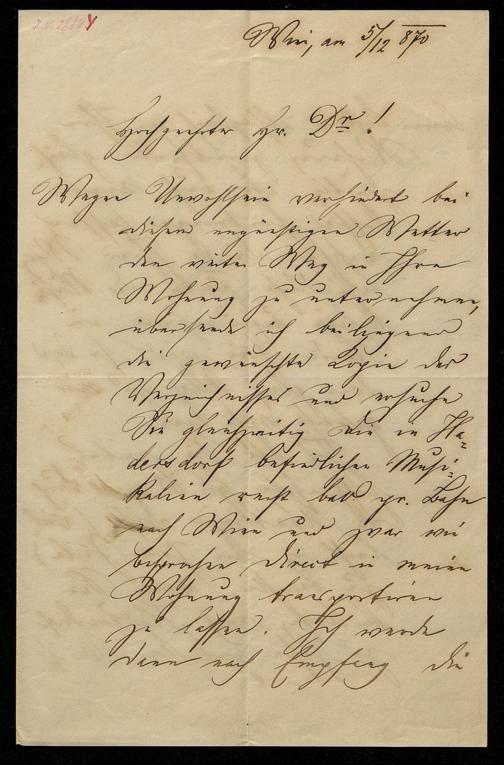 Wien, am 5/12 870
Hochgeehrter Hr. Dr!
Wegen Unwohlsein verhindert bei
diesem ungünstigen Wetter
den weiten Weg in Ihre
Wohnung zu unternehmen,
übersende ich beiliegend
die gewünschte Copie des
Verzeichnisses und ersuche
Sie gleichzeitig die in Ha-
dersdorf befindlichen Musi-
kalien recht bald pr. Bahn
nach Wien und zwar wie
besprochen direct in meine
Wohnung transportiren
zu lassen. Ich werde
dann nach Empfang die